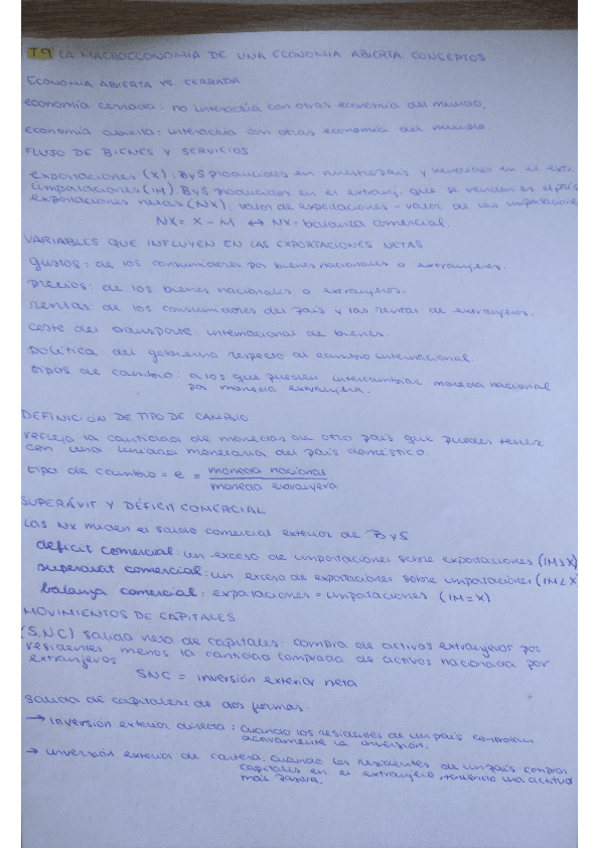 T9 LA MACROECONOMIA DE UNA ECONOMIA ABIERTA: CONCEPTOS
ECONOMIA ABIERTA VS CERRADA
economía cerrada: no interactúa con otras economía del mundo.
economía abierta: interactúa con otras economía del mundo.
FLUJO DE BIENES Y SERVICIOS
exportaciones (X): ByS producidos en nuestro país y vendidos en el extr.
importaciones (IM) ByS producidos en el extranj. que se venden es el país
exportaciones netas (NX): valor de exportaciones - valor de las importaciones
NX = X - M ↔ NX = balanza comercial.
VARIABLES QUE INFLUYEN EN LAS EXPORTACIONES NETAS
gustos: de los consumidores por bienes nacionales o extranjeros.
precios: de los bienes nacionales o extranjeros.
rentas: de los consumidores del país y las rentas de extranjeros.
coste del transporte: internacional de bienes.
política: del gobierno respecto al cambio internacional.
tipos de cambio: a los que pueden intercambiar moneda nacional
por moneda extranjera.
DEFINICIÓN DE TIPO DE CAMBIO
refleja la cantidad de monedas de otro país que puedes tener
con una unidad monetaria del país doméstico.
tipo de cambio = e = moneda nacional
moneda extranjera
SUPERÁVIT Y DÉFICIT COMERCIAL
Las NX miden el saldo comercial exterior de B y S
deficit comercial: un exceso de importaciones sobre exportaciones (IM>X)
superavit comercial: un exceso de exportaciones sobre importaciones (IM<X)
balanza comercial: exportaciones = importaciones (IM=X)
MOVIMIENTOS DE CAPITALES
(SNC) salida neta de capitales: compra de activos extranjeros por
residentes menos la cantidad comprada de activos nacionada por
extranjeros
SNC = inversión exterior neta
salida de capitales: de dos formas:
→ inversión exterior directa: cuando los residentes de un país controlan
activamente la inversión.
→ inversión exterior de cartera: cuando los residentes de un país compran
capitales en el extranjero, teniendo una actitud
más pasiva.